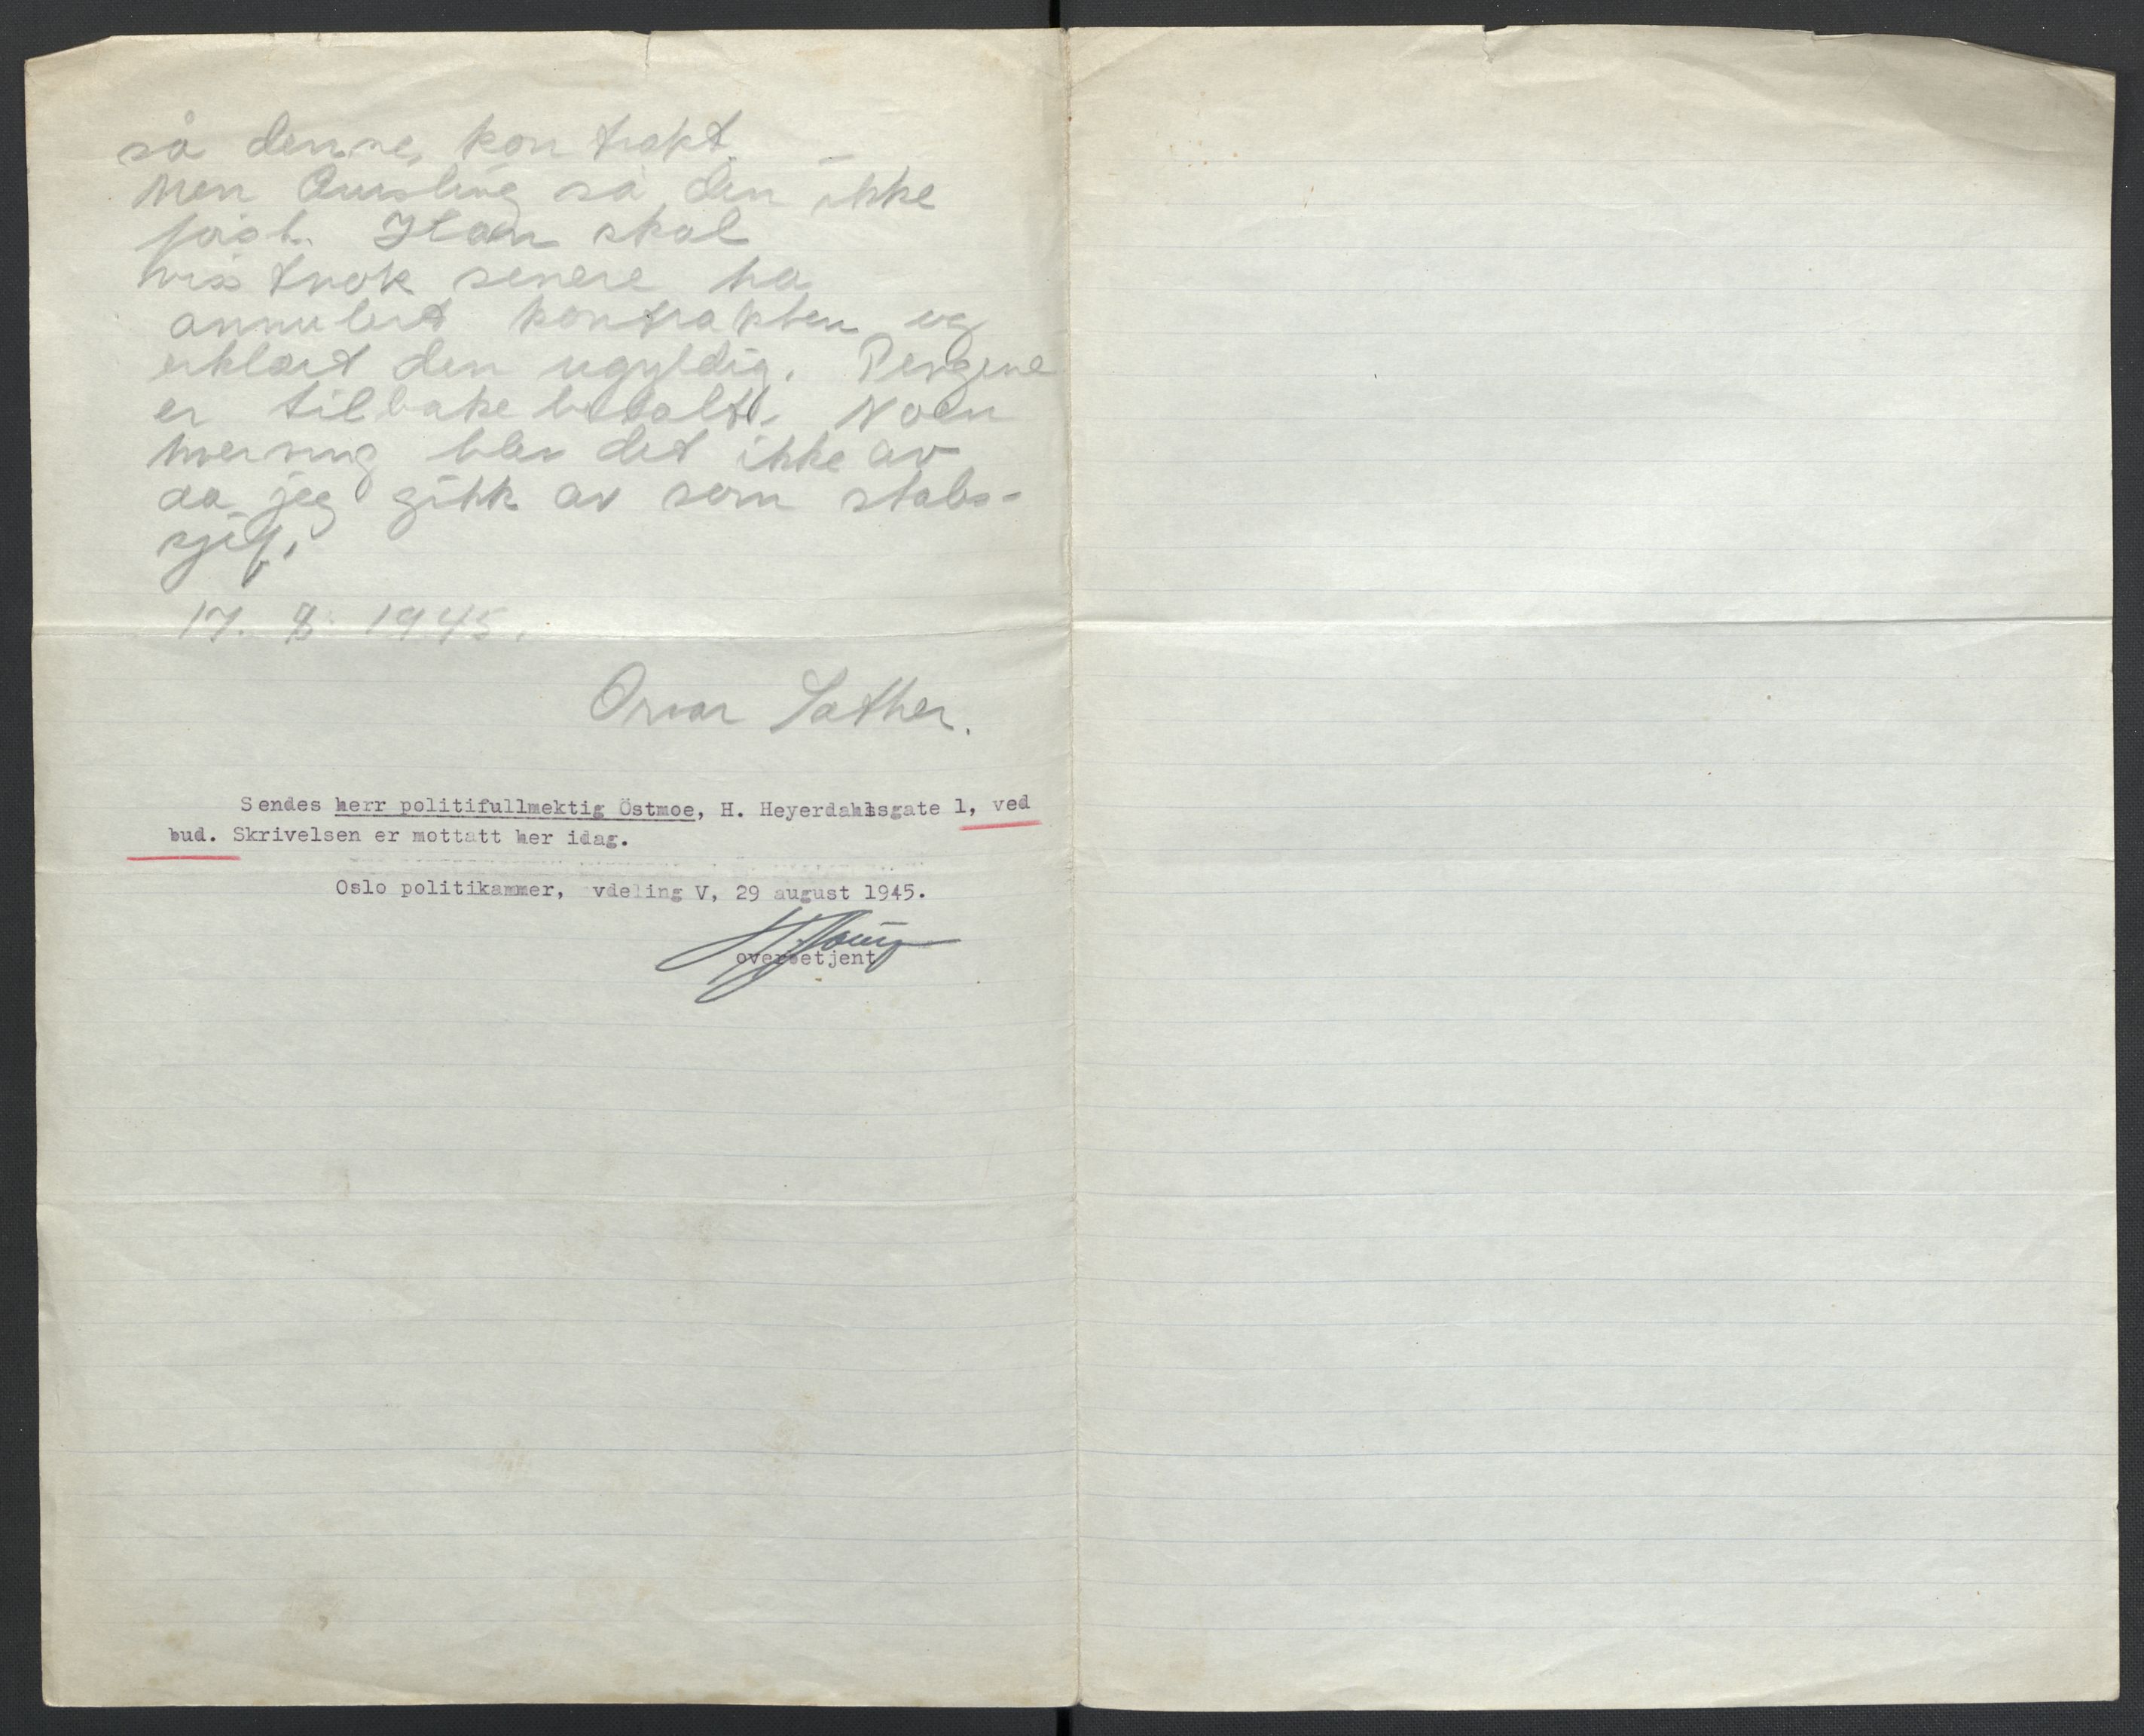 så denne kontrakt.
Men Quisling så den ikke
først. Han skal
visstnok senere ha
annulert kontrakten og
erklært den ugyldig. Pengene
er tilbakebetalt. Noen
hverving blev det ikke av
da jeg gikk av som stabs-
sjef.
17. 8. 1945.
Orvar Sæther.
Sendes herr politifullmektig Östmoe, H. Heyerdahlsgate 1, ved
bud. Skrivelsen er mottatt her idag.
Oslo politikammer, vdeling V, 29 august 1945.
overbetjent